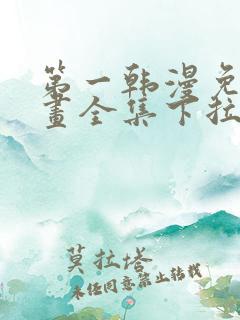 第一韩漫免
畫全集下拉
莫拉塔
未经同意禁止转载